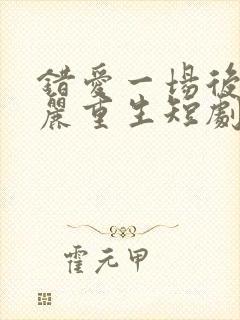 錯愛一場後
麗重生短劇
霍元甲